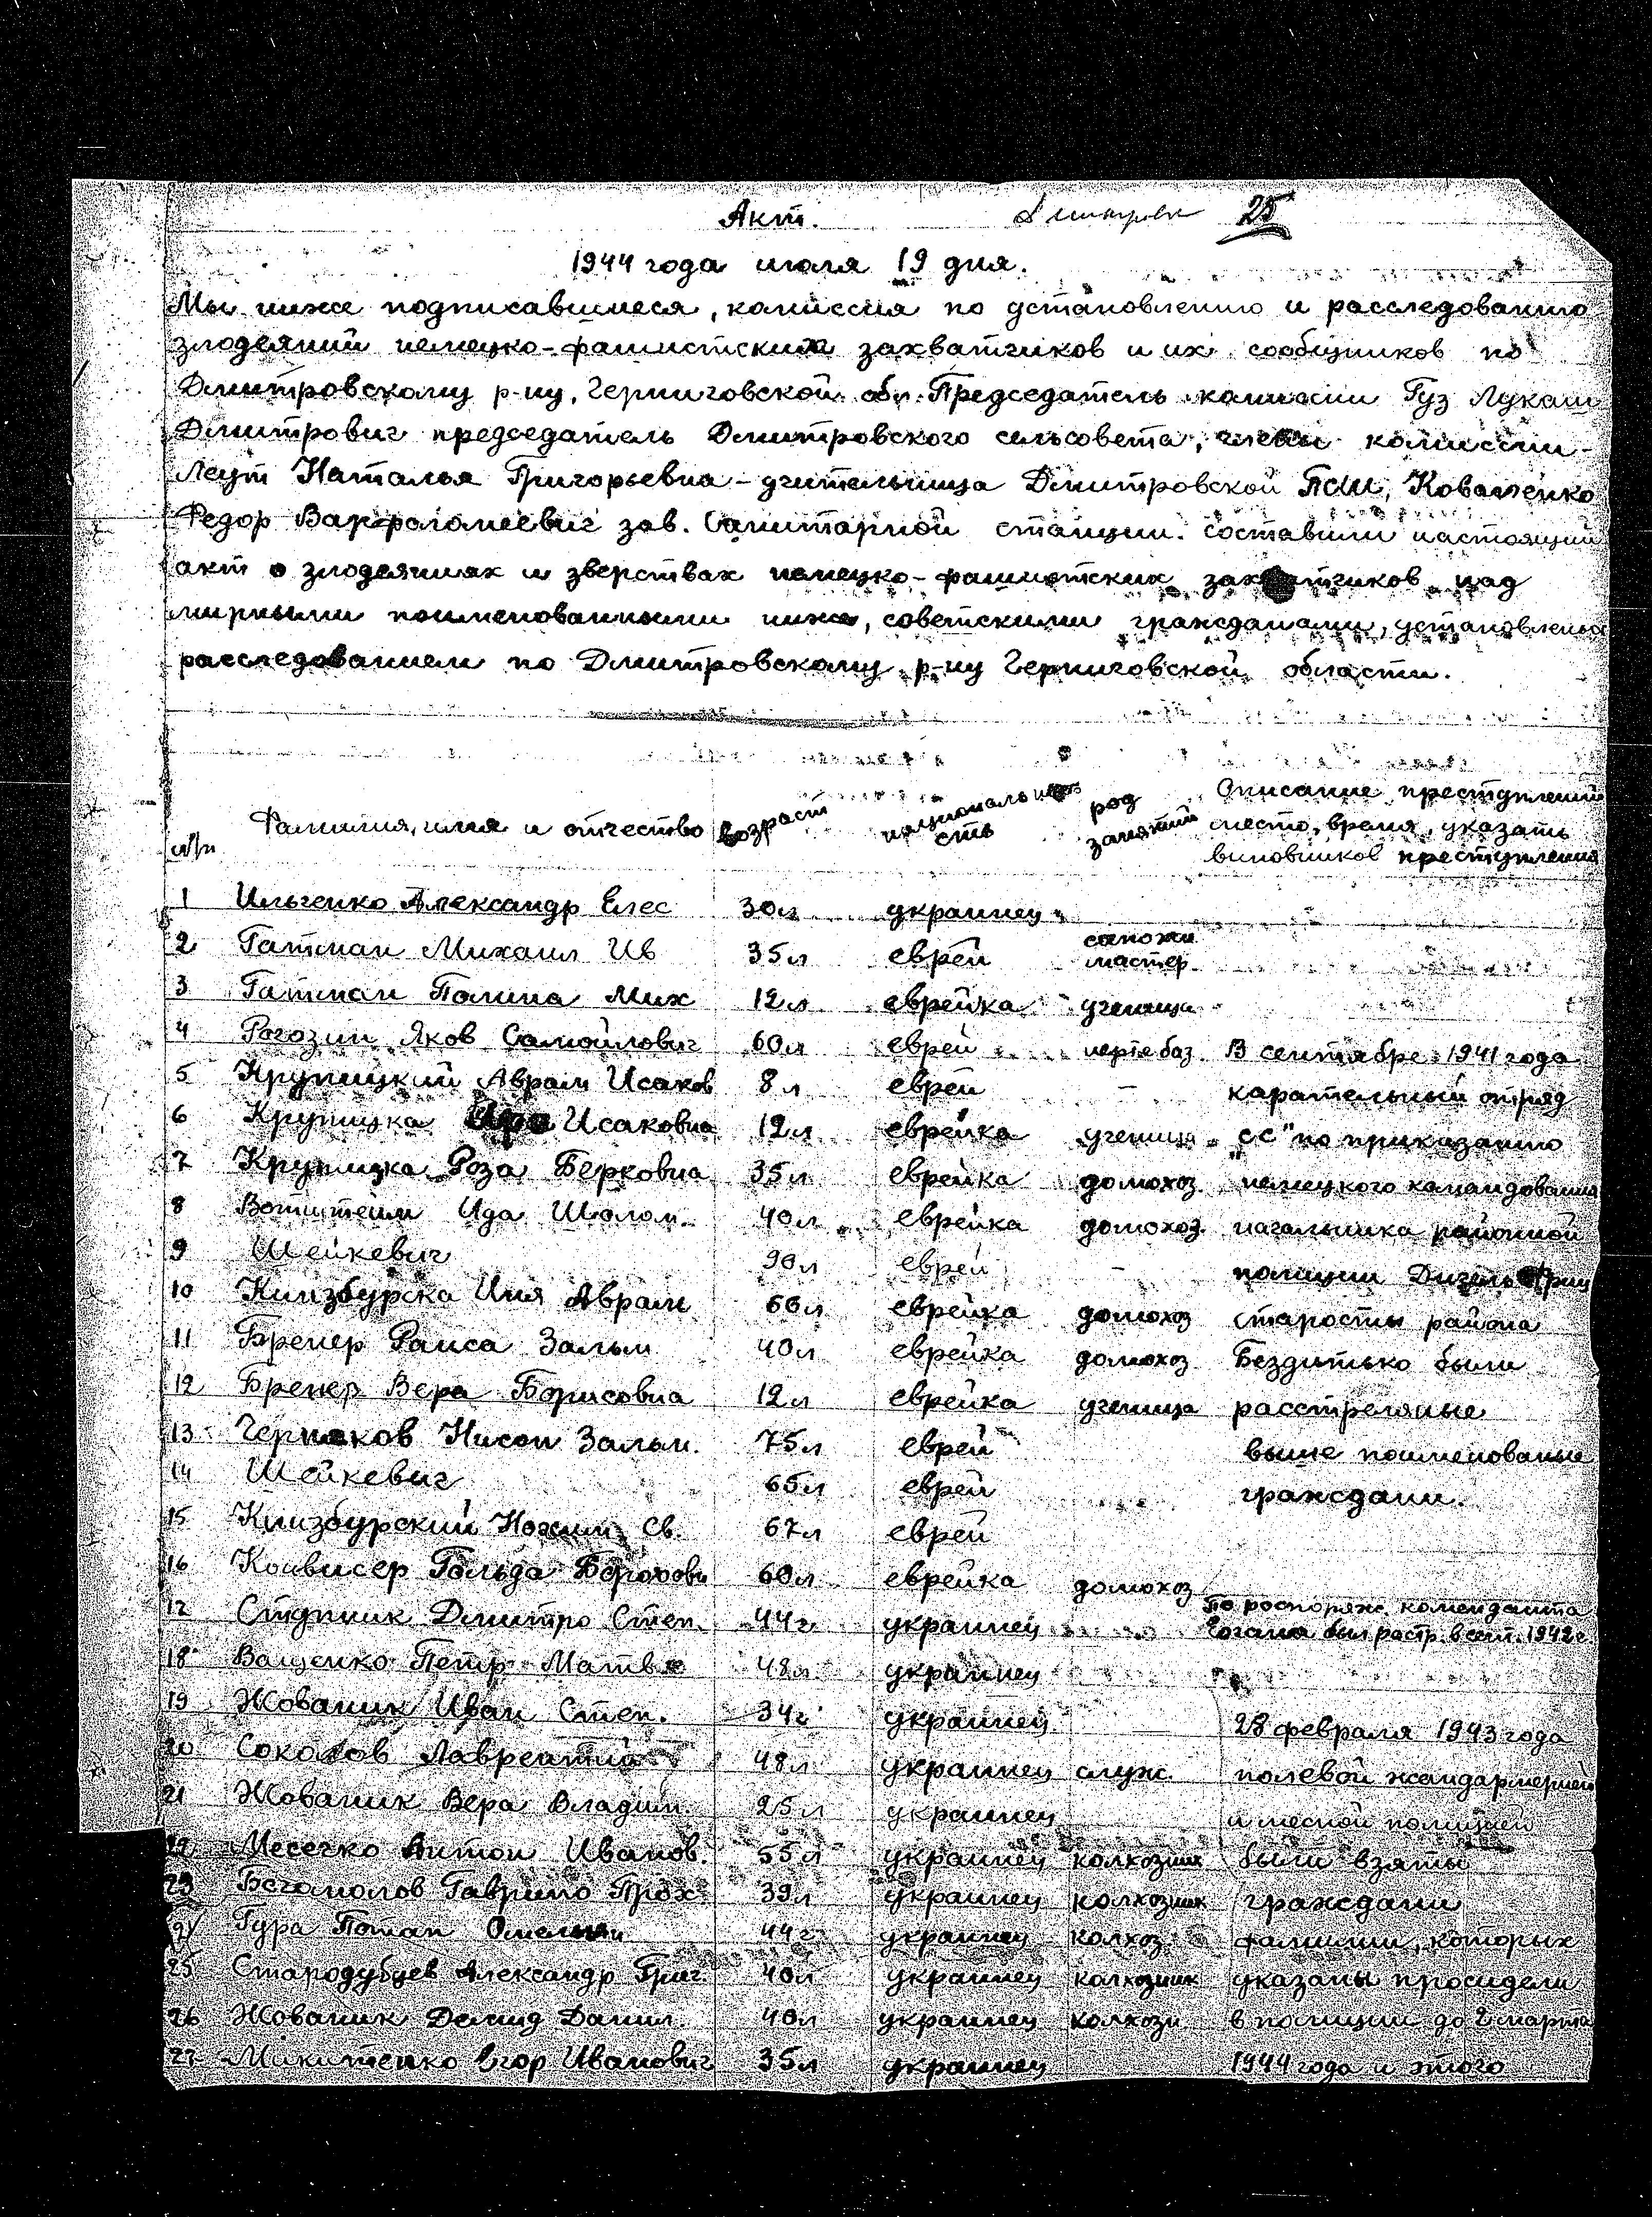 Акт.
25
1944 года июля 19 дня.
Мы ниже подписавшиеся, комиссия по установлению и расследованию
злодеяний немецко-фашистских захватчиков и их сообщников по
Дмитровскому р-ну, Черниговской обл. Председатель комиссии Гуз Лукаш
Дмитрович председатель Дмитровского сельсовета, члены комиссии-
Леут Наталья Григорьевна - учительница Дмитровской ПСШ, Коваленко
Федор Варфоломеевич зав. Санитарной станции. составили настоящий
акт о злодеяниях и зверствах немецко-фашистских захватчиков над
мирными поименованными ниже, советскими гражданами, установлено
расследованием по Дмитровскому р-ну Черниговской области.
н/п Фамилия, имя и отчество возраст национальность род занятий Описание преступлений место, время, указать виновников преступления
1 Ильченко Александр Елес 30л украинец
2 Гатман Михаил Ив 35л еврей сапожн мастер
3 Гатман Полина Мих 12л еврейка ученица
4 Рогозин Яков Самойлович 60л еврей нефтебаз В сентябре 1941 года
5 Крупицкий Аврам Исаков 8л еврей - карательный отряд
6 Крупицка Исаковна 12л еврейка ученица „СС" по приказанию
7 Крупицка Роза Берковна 35л еврейка домохоз. немецкого командования
8 Вотштейн Ида Шолом. 40л еврейка домохоз. начальника районной
9 Шейкевич 90л еврей - полиции
10 Кинзбурска Иня Аврам 66л еврейка домохоз старосты района
11 Бренер Раиса Зальм 40л еврейка домохоз Бездитько были
12 Бренер Вера Борисовна 12л еврейка ученица расстреляные
13 Черняков Нисон Зальм. 75л еврей выше поименованые
14 Шейкевич 65л еврей граждани.
15 Кинзбурский Нохим Св. 67л еврей
16 Койвисер Гольда Борохови 60л еврейка домохоз
17 Ступник Дмитро Степ. 44г украинец По роспоряж. коменданта
был растр. в сент. 1942г.
18 Ващенко Петр Матве 48л украинец
19 Жованик Иван Степ. 34г украинец 28 февраля 1943 года
20 Соколов Лаврентий 48л украинец служ. полевой жандармерией
21 Жованик Вера Владим. 25л украинец и месной полицией
22 Месечко Антон Иванов. 55л украинец колхозник были взяты
23 Богомолов Гаврило Прох 39л украинец колхозник граждани
24 Гура Потап 44г украинец колхоз фамилии, которых
25 Стародубцев Александр Григ. 40л украинец колхозник указаны просидели
26 Жованик Демид Данил. 40л украинец колхозн в полиции до 2 марта
27 Микитенко Егор Иванович 35л украинец 1944 года и этого